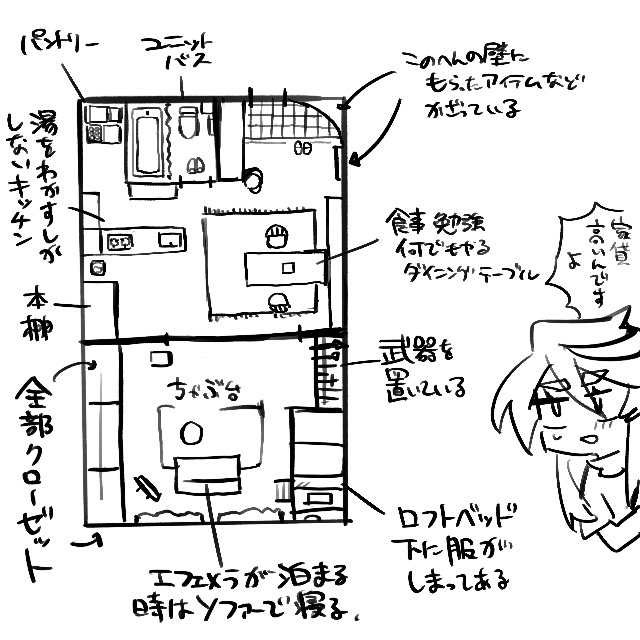 パントリー
ユニット
バス
このへんの壁に
もらったアイテムなど
かざっている
湯をわかすしか
しないキッチン
食事 勉強
何でもやる
ダイニングテーブル
家賃
高いんです
よ
本棚
武器を
置いている
ちゃぶ台
全部クローゼット
ロフトベッド
下に服が
しまってある
エフェメラが泊まる
時はソファーで寝る.